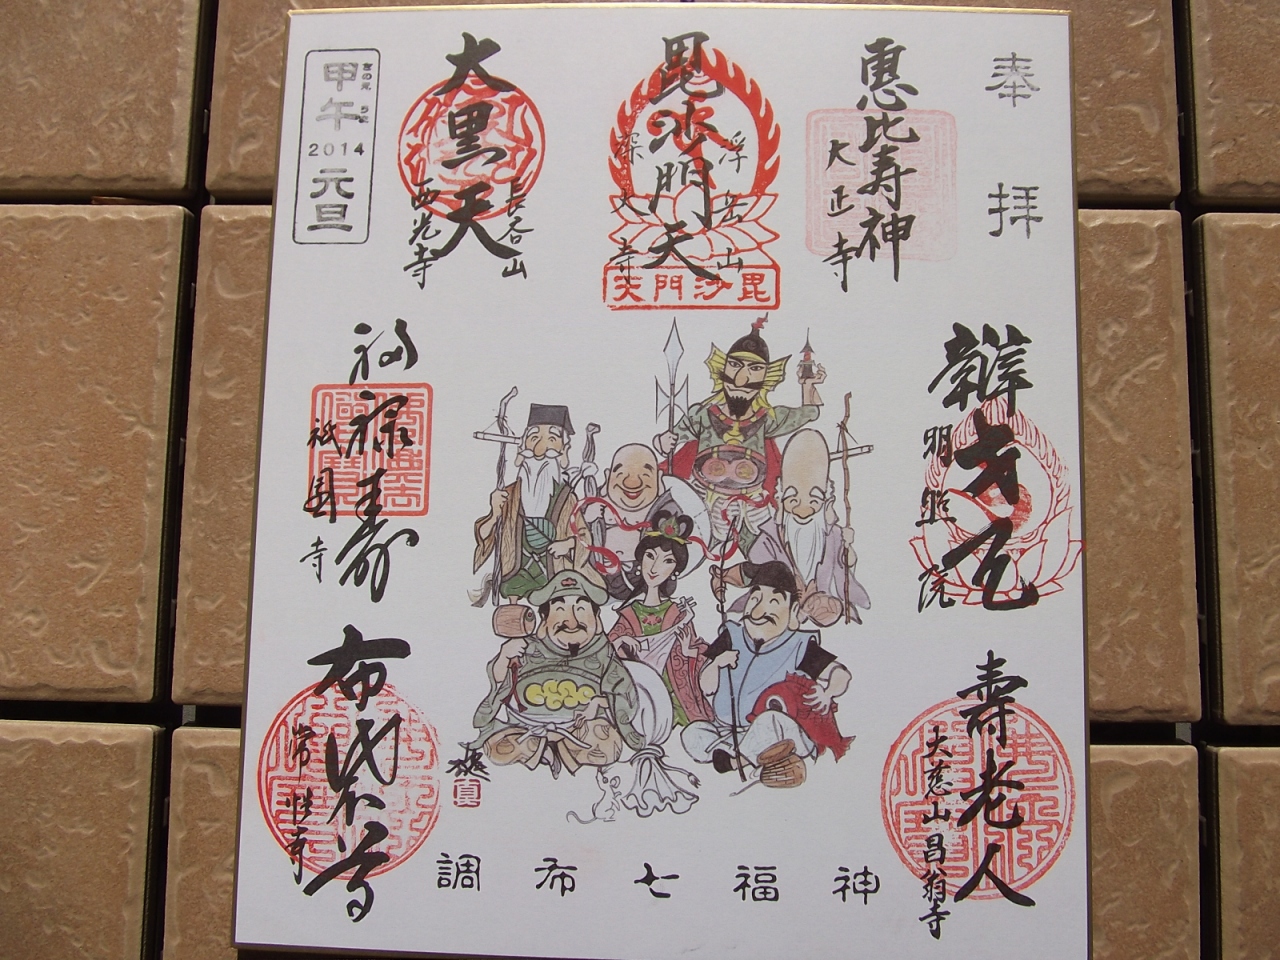 奉拝
惠比壽神
大正寺
毘沙門天
浮岳山
深大寺
毘沙門天
大黒天
長谷山
西光寺
甲午
きのえ うま
2014
元旦
辨才天
明照院
福禄寿
祇園寺
壽老人
大慈山昌翁寺
布袋尊
常性寺
調布七福神